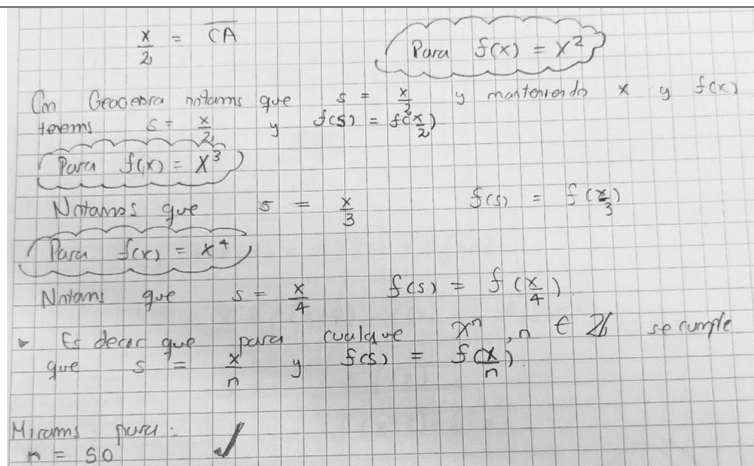 x/2 = CA
Para f(x) = x²
Con Geogebra notams que s = x/2 y manteniendo x y f(x)
tenems s = x/2 y f(s) = f(x/2)
Para f(x) = x³
Notamos que s = x/3 f(s) = f(x/3)
Para f(x) = x⁴
Notams que s = x/4 f(s) = f(x/4)
Es decir que para cualque xⁿ, n ∈ ℤ se cumple
que s = x/n y f(s) = f(x/n).
Mirams para:
n = 50 ✓